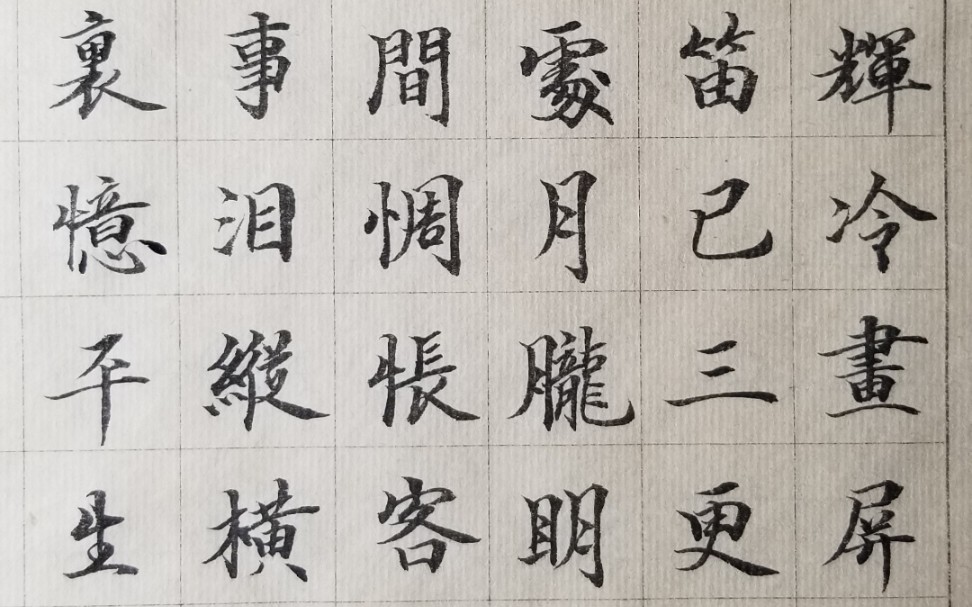 輝冷畫屏
笛已三更
處月朧明
間惆悵客
事泪縱橫
裏憶平生